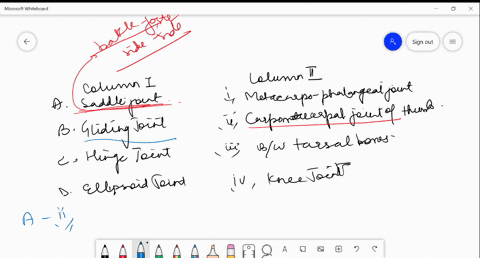 Microsoft Whiteboard
Sign out
side side
Column I
A. Saddle joint
B. Gliding Joint
C. Hinge Joint
D. Ellipsoid Joint
A - ii
Column II
i, Metacarpo-phalangeal joint
ii, Carpometacarpal joint of thumb
iii, B/W tarsal bones
iv, Knee Joint